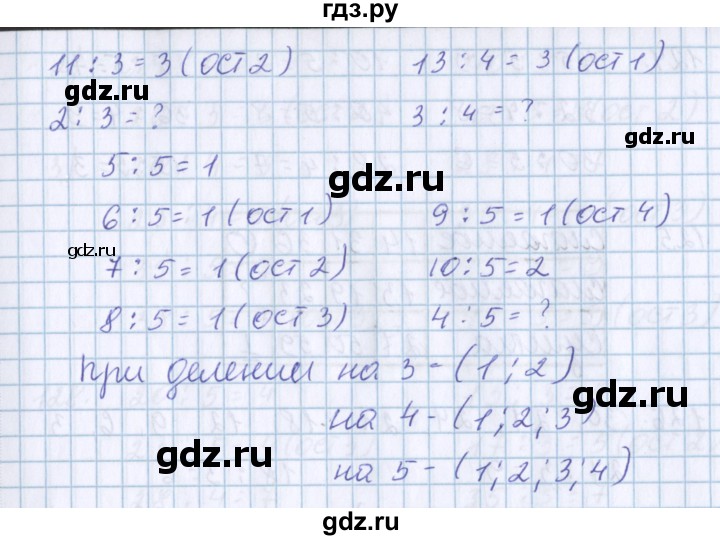 гдз.ру
11 : 3 = 3 (ост 2) 13 : 4 = 3 (ост 1)
gdz.ru
gdz.ru
2 : 3 = ? 3 : 4 = ?
5 : 5 = 1
gdz.ru
6 : 5 = 1 (ост 1) 9 : 5 = 1 (ост 4)
gdz.ru
7 : 5 = 1 (ост 2) 10 : 5 = 2
8 : 5 = 1 (ост 3) 4 : 5 = ?
При делении на 3 - (1 ; 2)
gdz.ru
на 4 - (1 ; 2 ; 3)
gdz.ru
на 5 - (1 ; 2 ; 3 ; 4)
gdz.ru